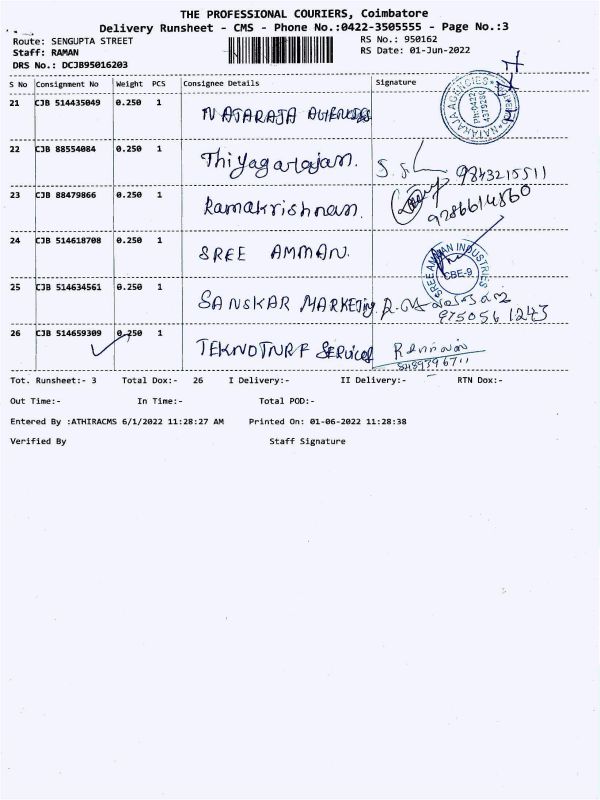 THE PROFESSIONAL COURIERS, Coimbatore
Delivery Runsheet - CMS - Phone No.:0422-3505555 - Page No.:3
Route: SENGUPTA STREET RS No.: 950162
Staff: RAMAN RS Date: 01-Jun-2022
DRS No.: DCJB95016203
S No Consignment No Weight PCS Consignee Details Signature
21 CJB 514435049 0.250 1 NATARAJA AGENCIES NATARAJA AGENCIES Ph:0422
22 CJB 88554084 0.250 1 Thiyagarajan. 9843215511
23 CJB 88479866 0.250 1 Ramakrishnan. 9286614860
24 CJB 514618708 0.250 1 SREE AMMAN. SREE AMMAN INDUSTRIES CBE-9
25 CJB 514634561 0.250 1 SANSKAR MARKETING. 9750561243
26 CJB 514659309 0.250 1 TEKNOTURF SERVICES
Tot. Runsheet:- 3 Total Dox:- 26 I Delivery:- II Delivery:- RTN Dox:-
Out Time:- In Time:- Total POD:-
Entered By :ATHIRACMS 6/1/2022 11:28:27 AM Printed On: 01-06-2022 11:28:38
Verified By Staff Signature